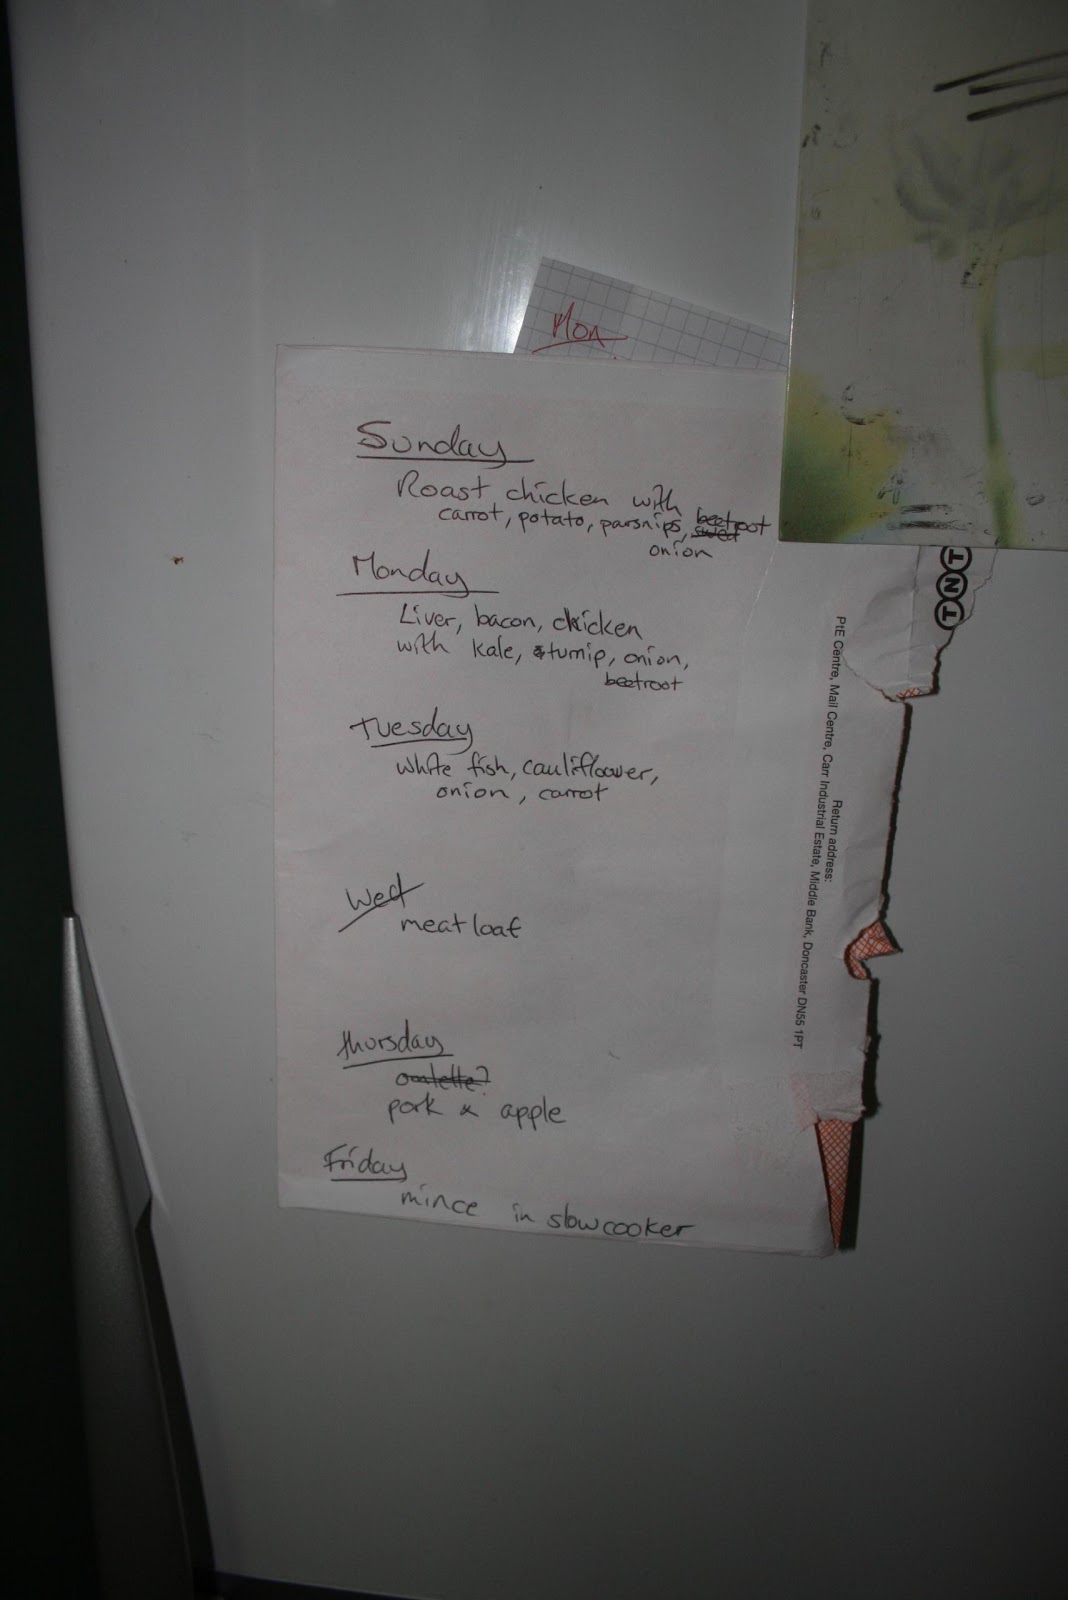 Mon
Sunday
Roast chicken with
carrot, potato, parsnips, beetroot
swed
onion
Monday
Liver, bacon, chicken
with kale, turnip, onion,
beetroot
Tuesday
White fish, cauliflower,
onion, carrot
Wed
meatloaf
thursday
omlette?
pork & apple
Friday
mince in slowcooker
TNT
Return address:
PtE Centre, Mail Centre, Carr Industrial Estate, Middle Bank, Doncaster DN55 1PT